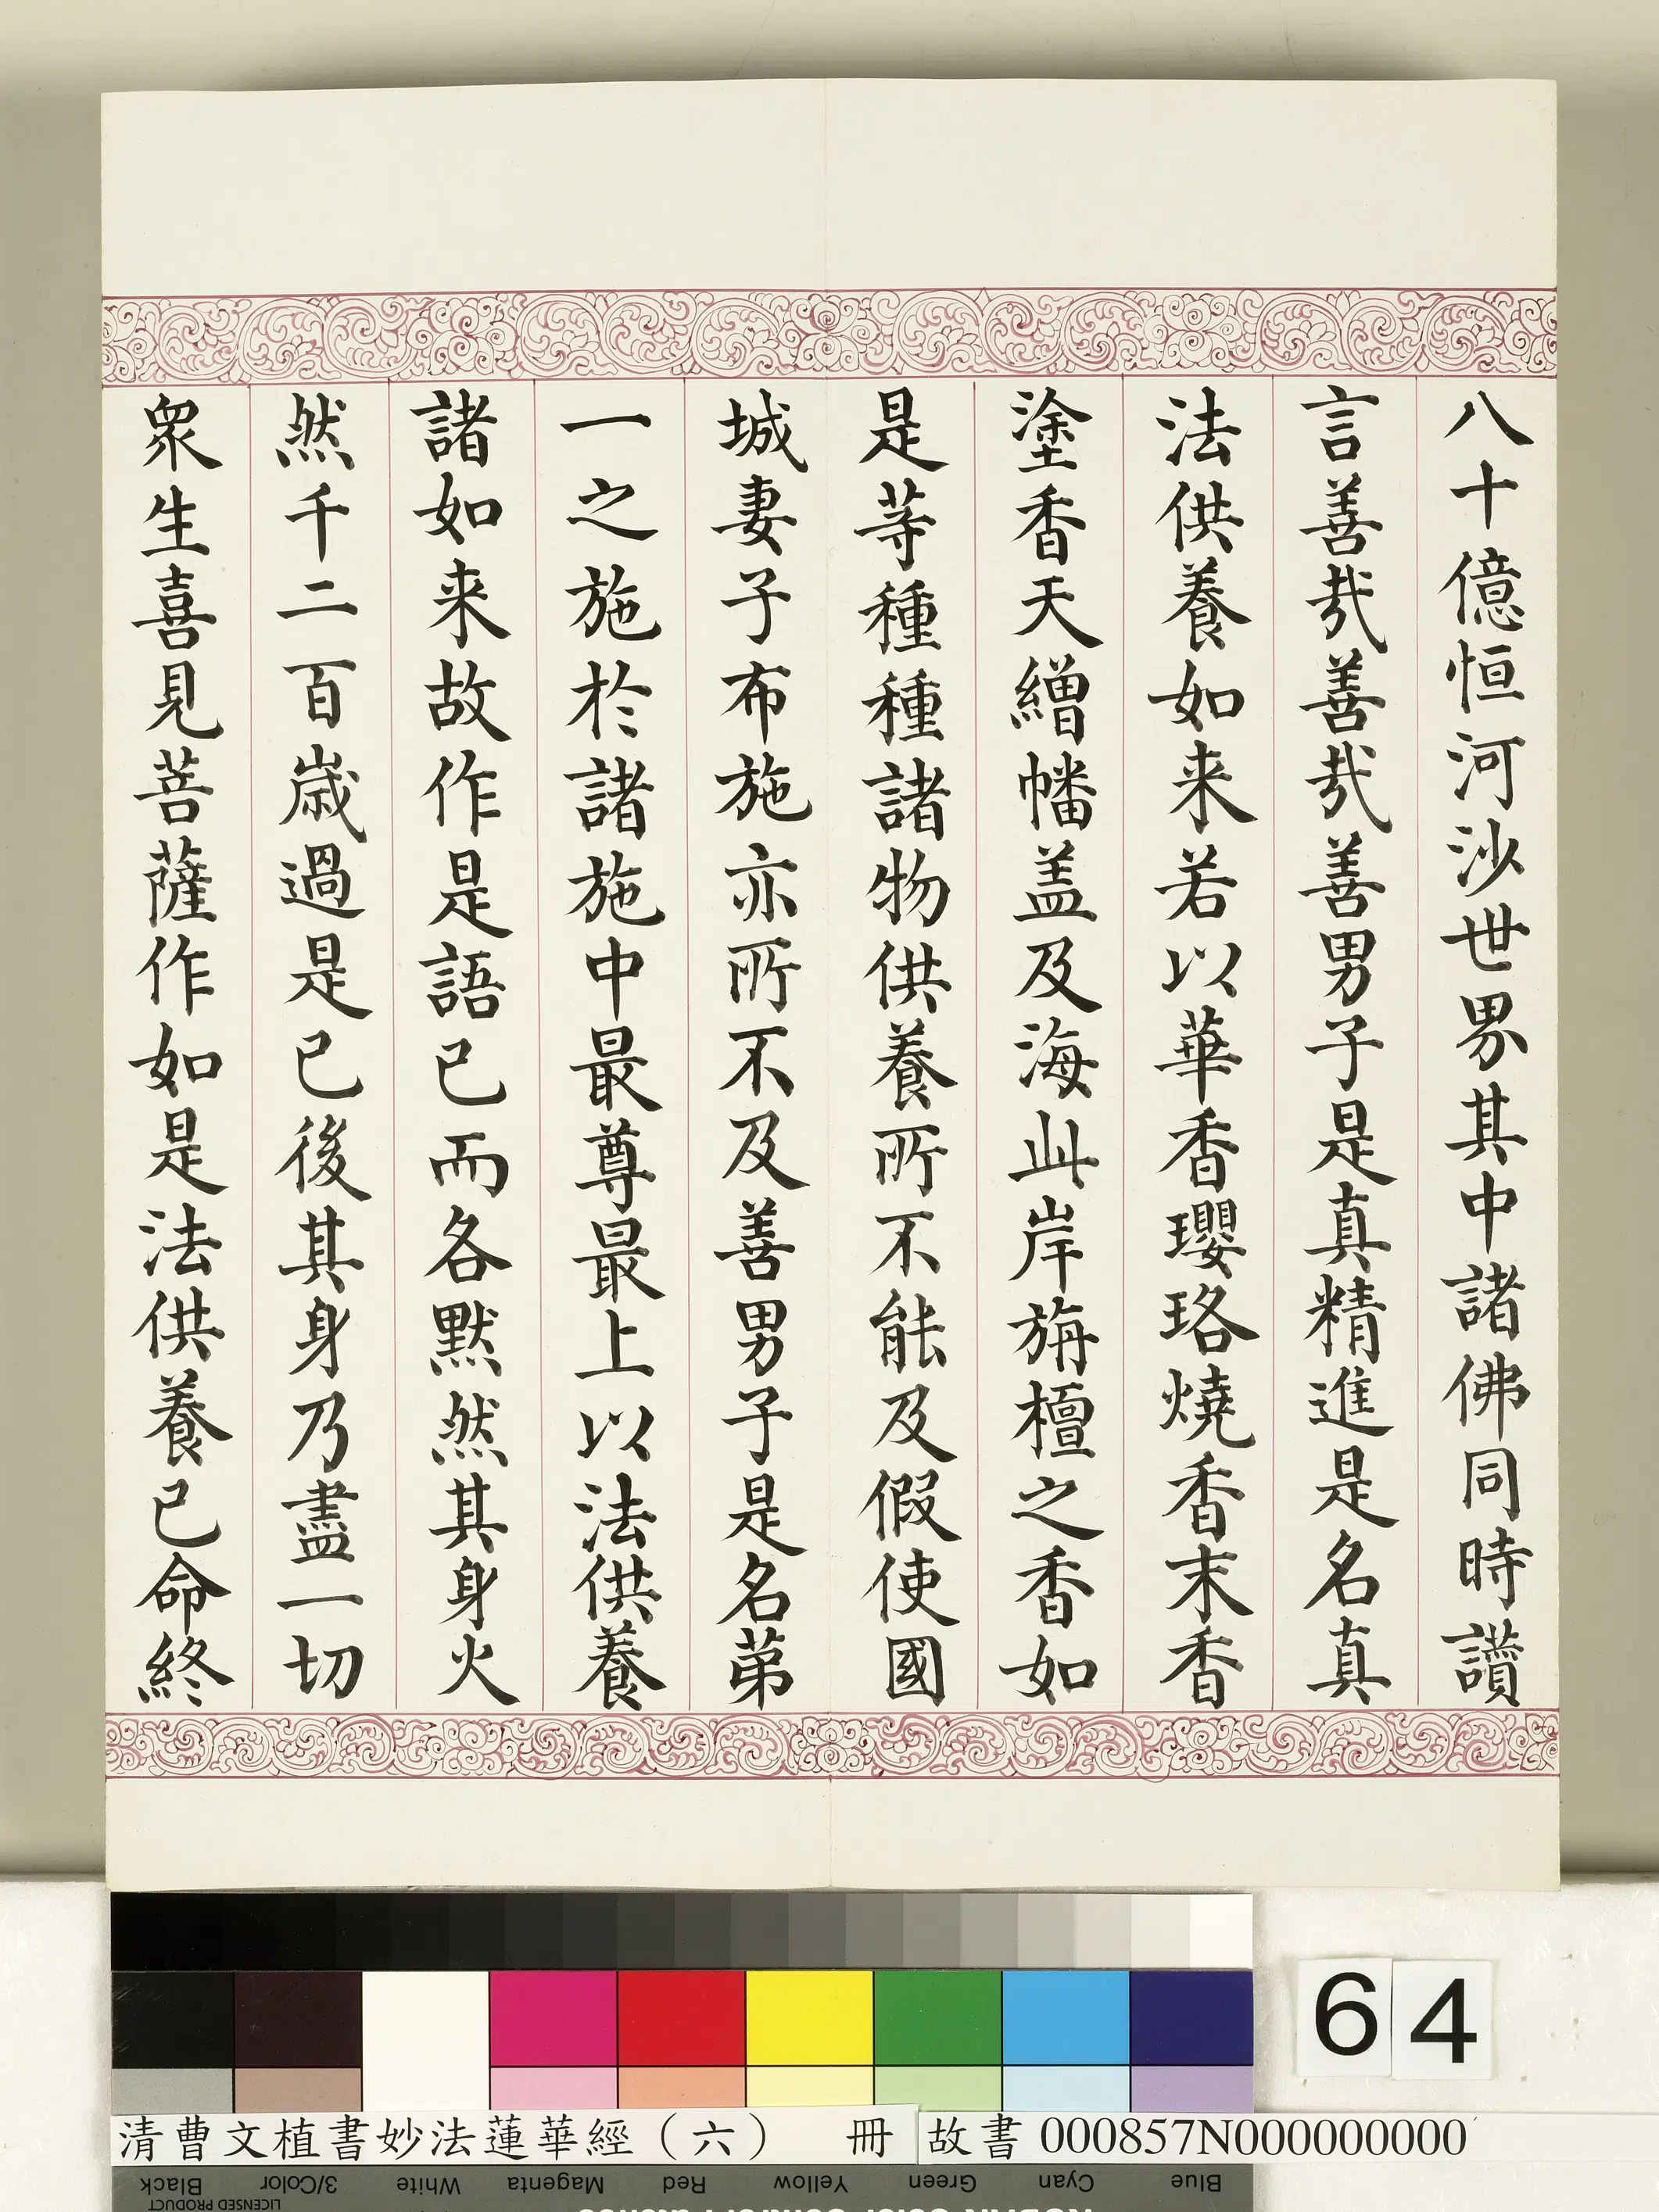 八十億恒河沙世界其中諸佛同時讃
言善哉善哉善男子是真精進是名真
法供養如来若以華香瓔珞燒香末香
塗香天繒幡盖及海此岸旃檀之香如
是等種種諸物供養所不能及假使國
城妻子布施亦所不及善男子是名苐
一之施於諸施中最尊最上以法供養
諸如来故作是語已而各默然其身火
然千二百歳過是已後其身乃盡一切
衆生喜見菩薩作如是法供養已命終
64
清曹文植書妙法蓮華經（六） 冊 故書000857N000000000
Black 3/Color White Magenta Red Yellow Green Cyan Blue
LICENSED PRODUCT